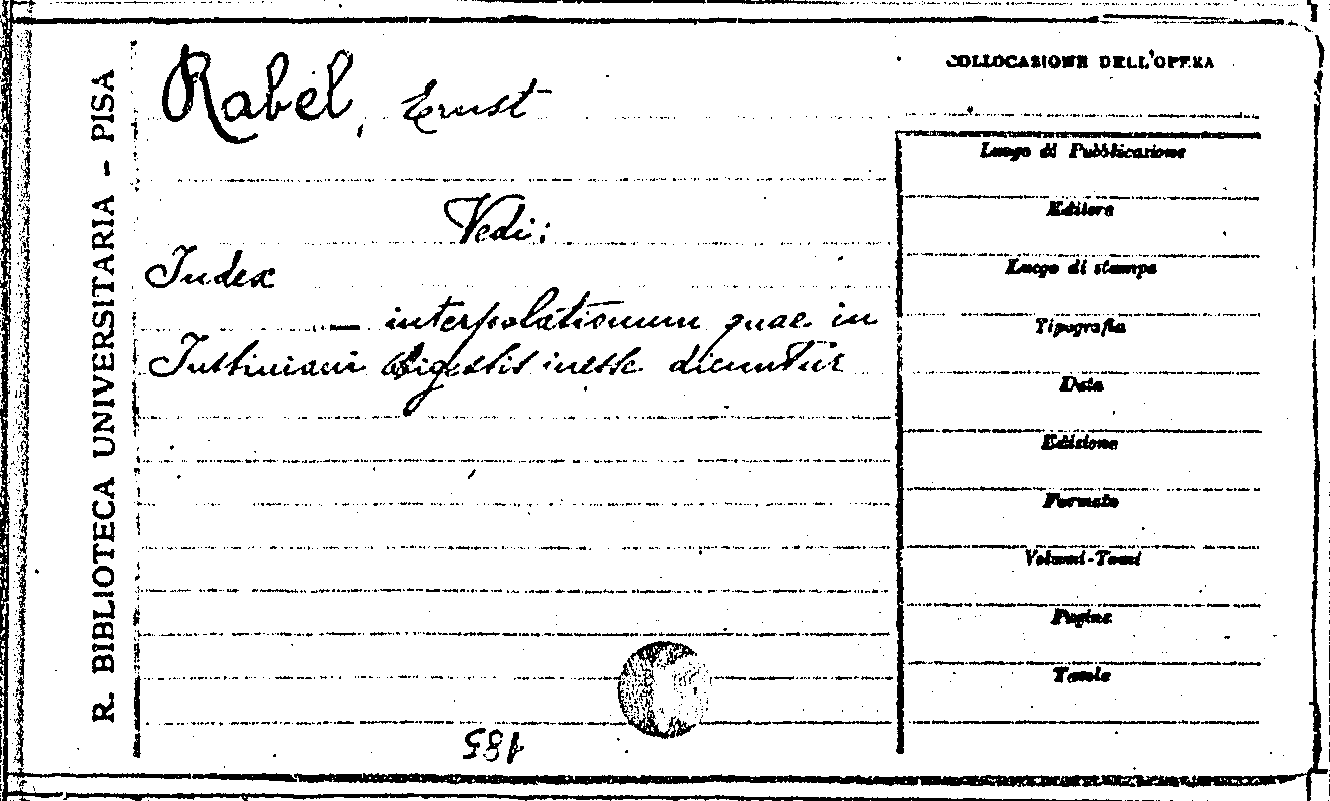 R. BIBLIOTECA UNIVERSITARIA - PISA
Rabel, Ernst
Vedi:
Index
— interpolationum quae in
Justiniani Digestis inesse dicuntur
185
COLLOCAZIONE DELL'OPERA
Luogo di Pubblicazione
Editore
Luogo di stampa
Tipografia
Data
Edizione
Formato
Volumi-Tomi
Pagine
Tavole